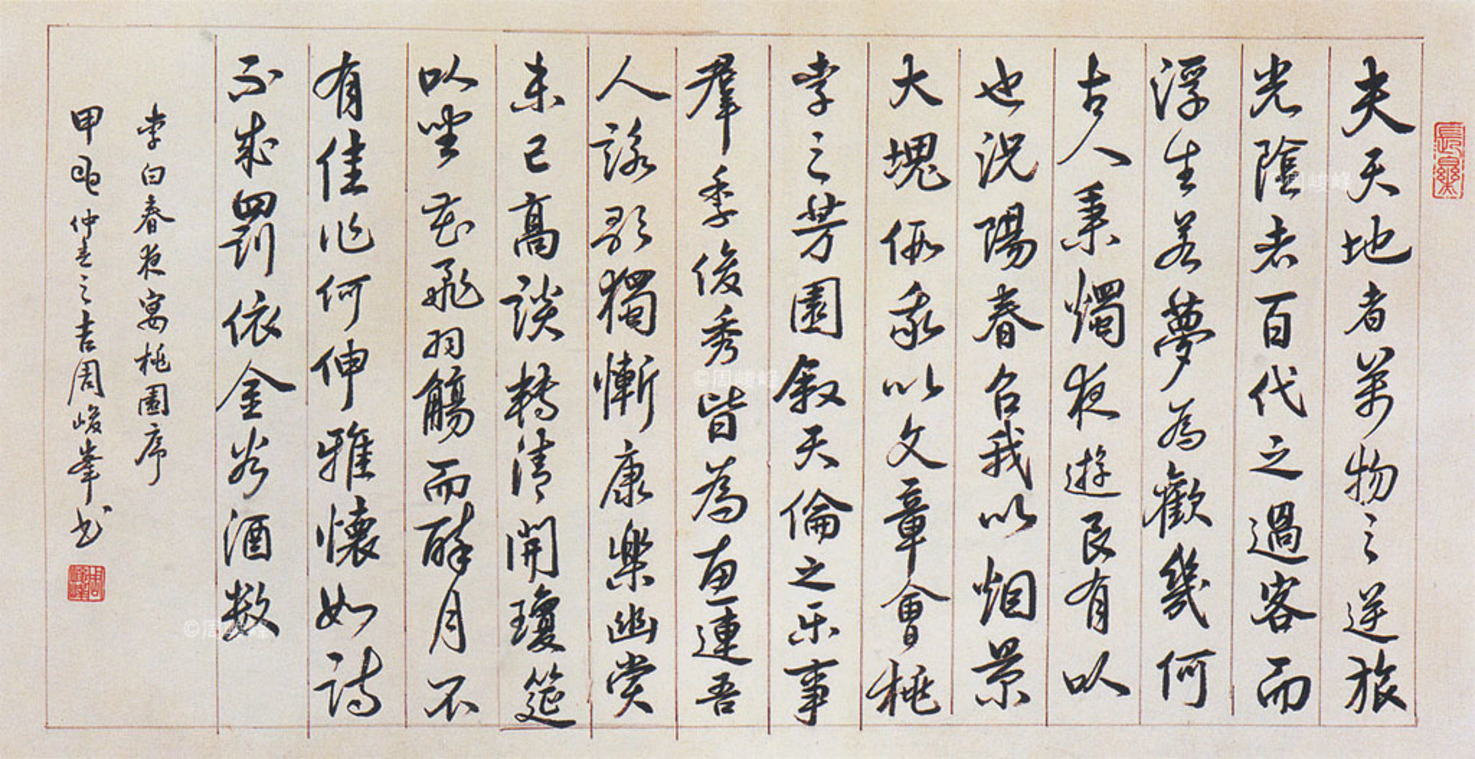 長樂
夫天地者萬物之逆旅
光陰者百代之過客而
浮生若夢為歡幾何
古人秉燭夜遊良有以
也況陽春召我以烟景
大塊假我以文章會桃
李之芳園叙天倫之乐事
羣季俊秀皆為惠連吾
人詠歌獨慚康樂幽赏
未已高談轉清開瓊筵
以坐花飛羽觴而醉月不
有佳作何伸雅懷如詩
不成罰依金谷酒数
李白春夜宴桃園序
甲仲春之吉周峻峯书
©周峻峰
©周峻峰
©周峻峰